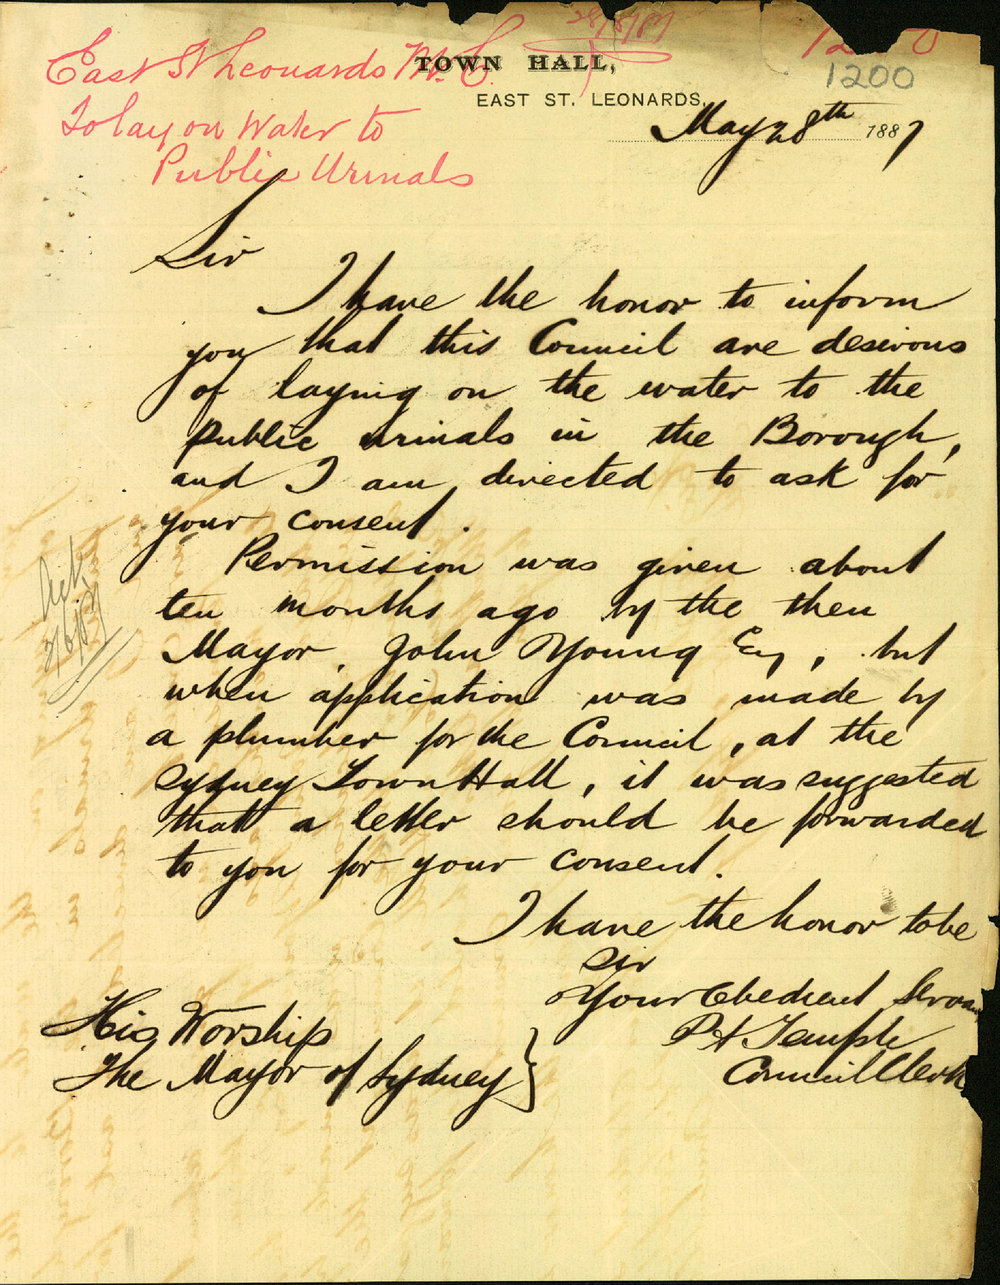 East St Leonards M.C.
To lay on Water to
Public Urinals
28/5/87
1200
1200
TOWN HALL,
EAST ST. LEONARDS,
May 28th 1887
Sir
I have the honor to inform
you that this Council are desirous
of laying on the water to the
public urinals in the Borough,
and I am directed to ask for
your consent.
Permission was given about
ten months ago by the then
Mayor, John Young Esq, but
when application was made by
a plumber for the Council, at the
Sydney Town Hall, it was suggested
that a letter should be forwarded
to you for your consent.
I have the honor to be
Sir
Your Obedient Servan
Temple
Council Clerk
His Worship
The Mayor of Sydney
Ack
2/6/87